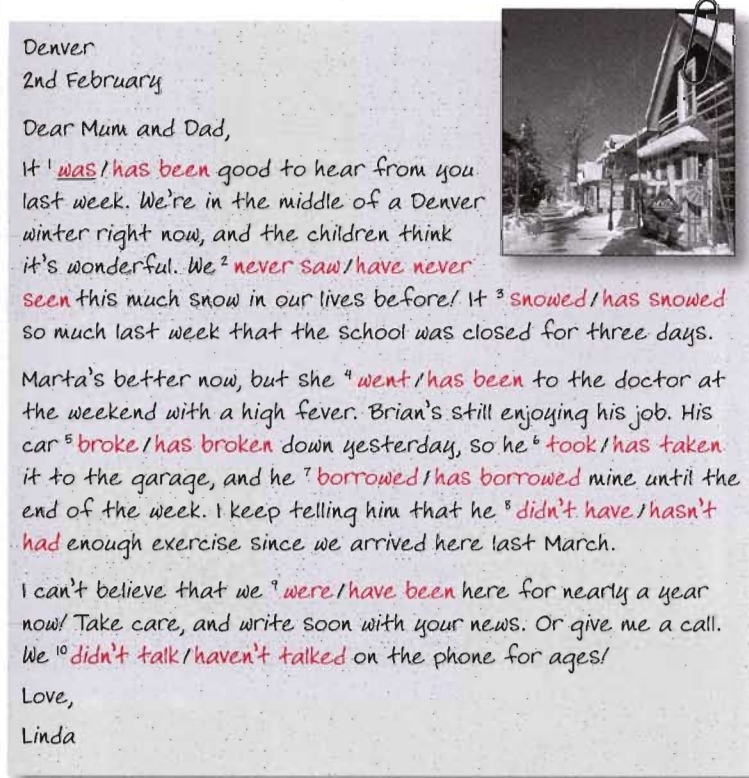 Denver
2nd February
Dear Mum and Dad,
It 1 was / has been good to hear from you
last week. We're in the middle of a Denver
winter right now, and the children think
it's wonderful. We 2 never saw / have never
seen this much snow in our lives before! It 3 snowed / has snowed
so much last week that the school was closed for three days.
Marta's better now, but she 4 went / has been to the doctor at
the weekend with a high fever. Brian's still enjoying his job. His
car 5 broke / has broken down yesterday, so he 6 took / has taken
it to the garage, and he 7 borrowed / has borrowed mine until the
end of the week. I keep telling him that he 8 didn't have / hasn't
had enough exercise since we arrived here last March.
I can't believe that we 9 were / have been here for nearly a year
now! Take care, and write soon with your news. Or give me a call.
We 10 didn't talk / haven't talked on the phone for ages!
Love,
Linda